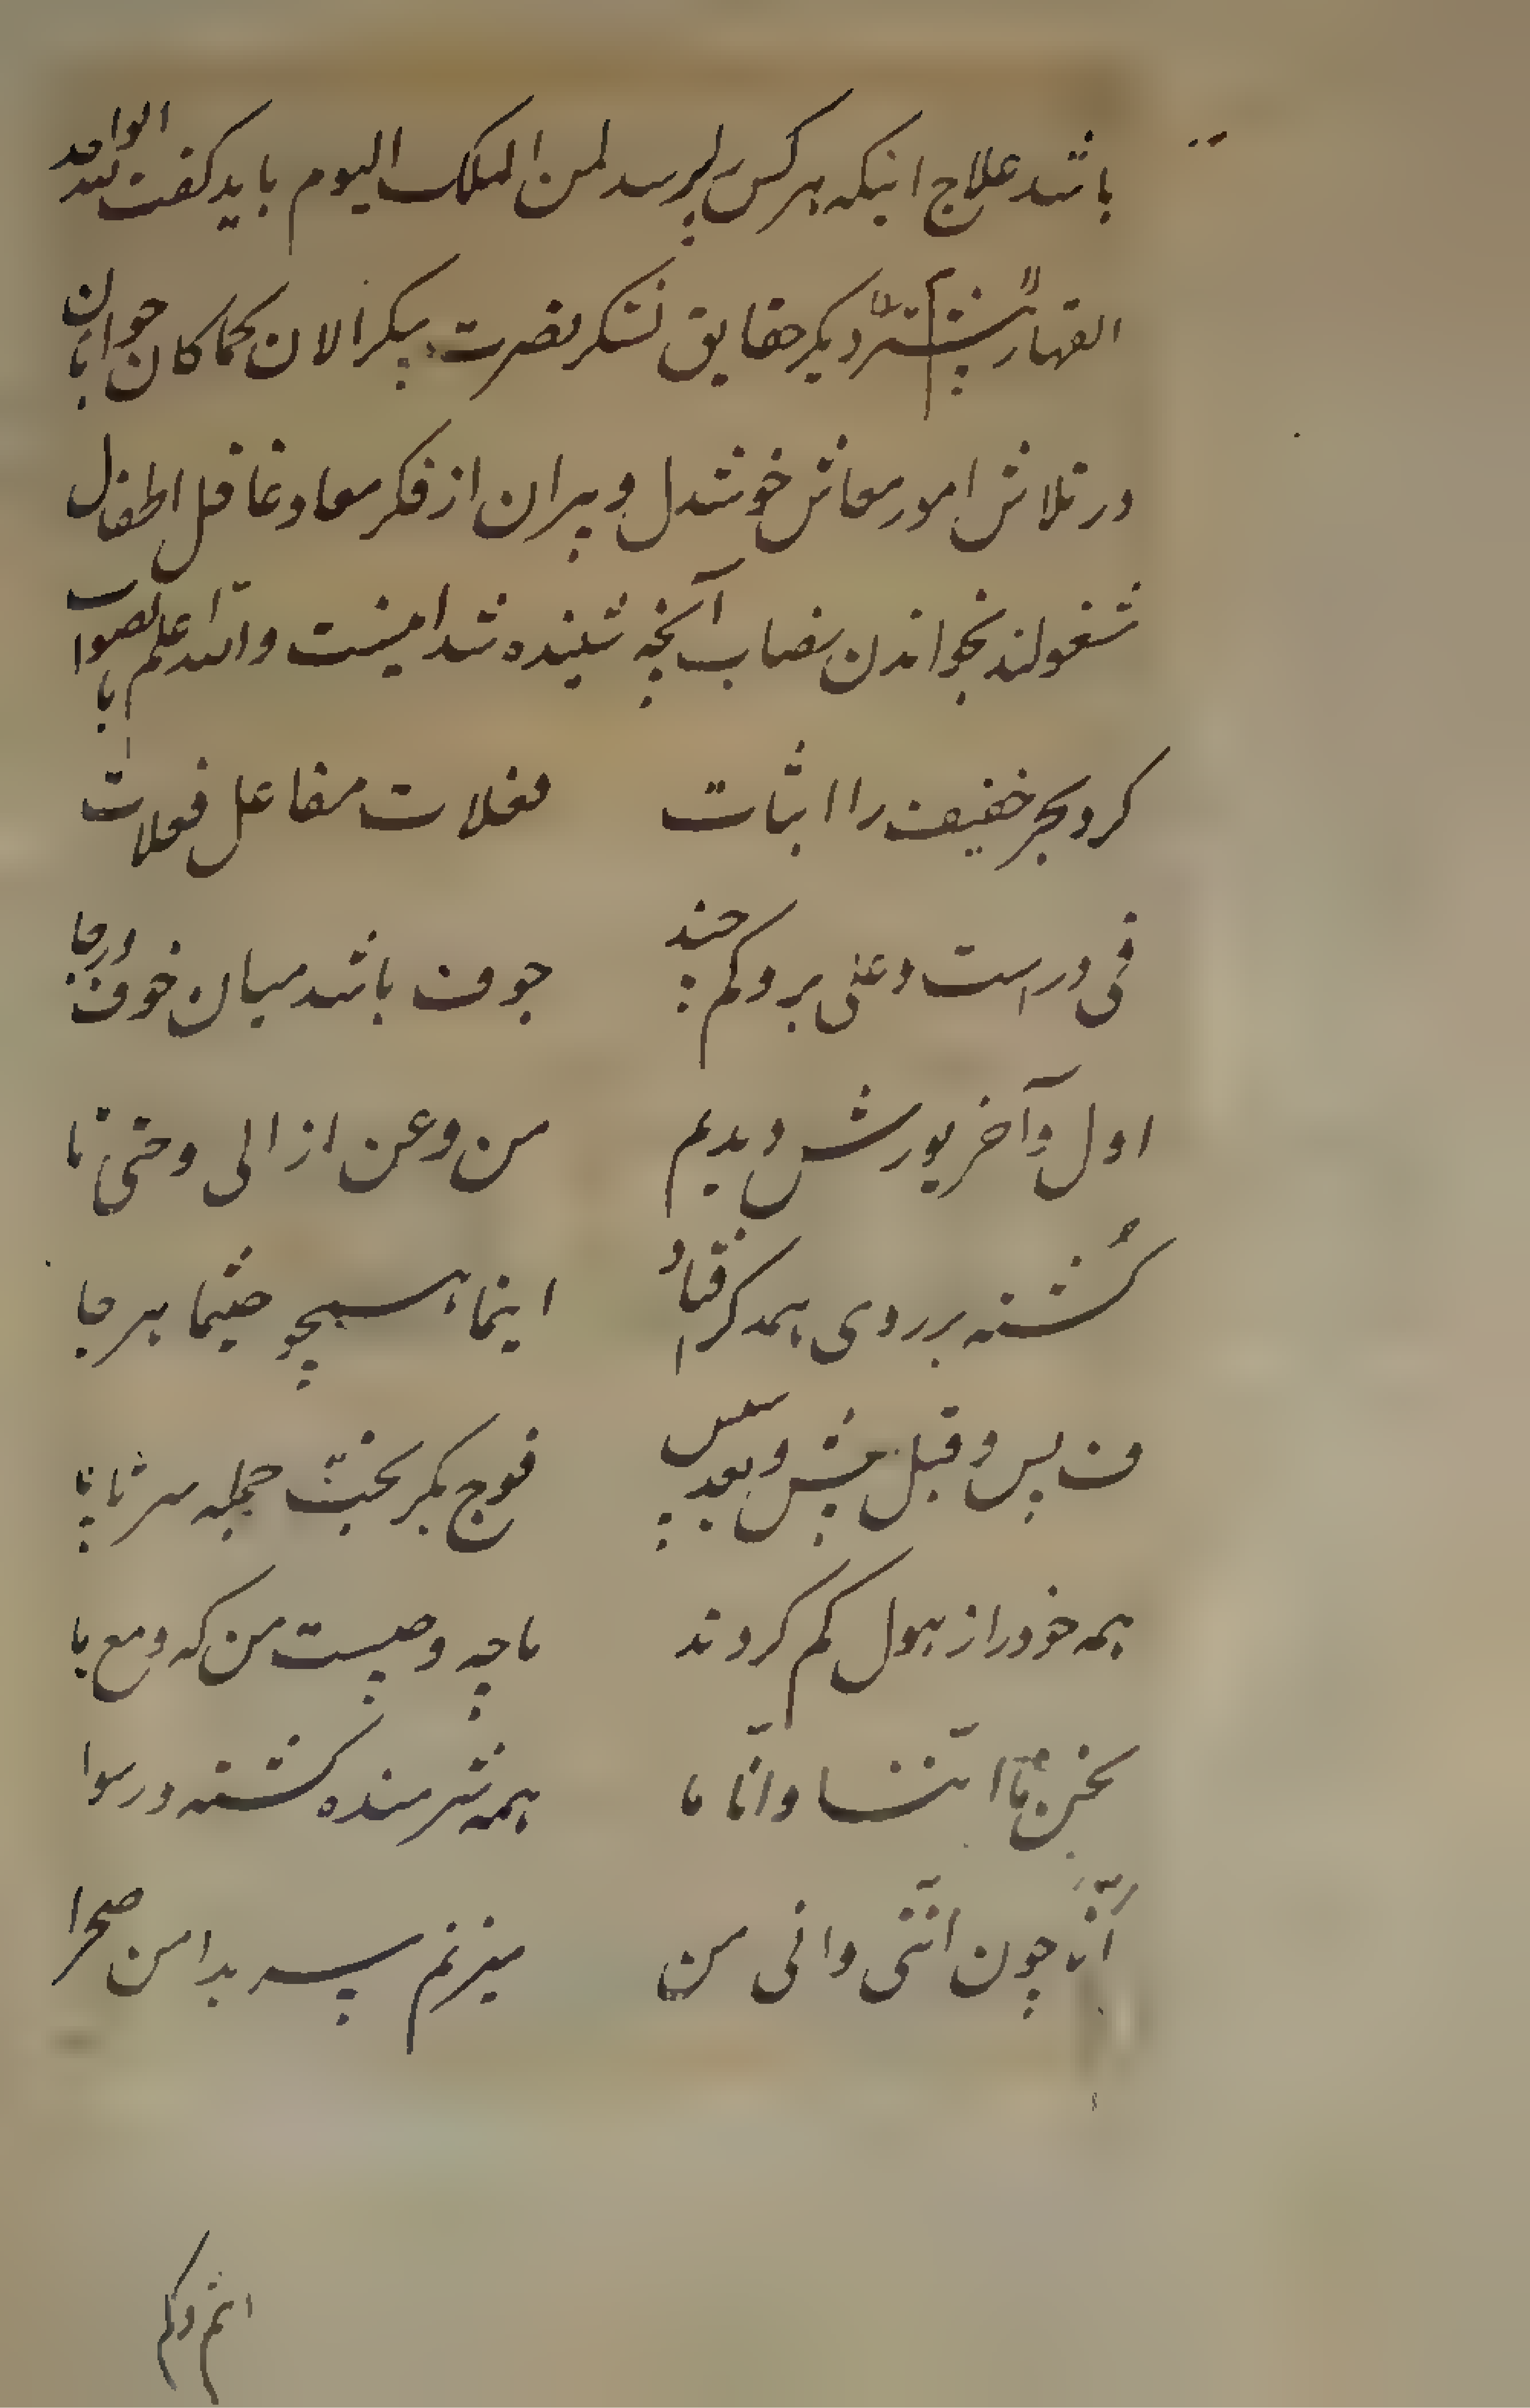 باشد علاج اینکه هرکس بپرسد لمن الملک الیوم باید کفت لله الواحد
القهار دیکر حقایق لشکر نصرت پیکر الان کما کان جوانان
در تلاش امور معاش خوشدل و پیران از فکر معاد غافل اطفال
شغولند بخواندن نصاب آنچه شینده شد اینست والله اعلم بالصواب
کرد بحر خفیف را اثبات فعلات مفاعل فعلات
فی در است و علی بر و کم چند جوف باشد میان خوف رجا
اول و آخر یورش دیدیم من و عن از الی و حتی تا
کشته بر روی همدکر افتاد اینما همچو حیثما هرجا
ف پس و قبل پیش و بعد سپس فوج بکریخت جمله سر تا پا
همه خود را از هول کم کردند ما چه و چیست من که و مع با
نحن ما اننا و انا ما همه شرمنده کشته و رسوا
انا چون اننی و انی من میزنم سر بدامن صحرا
انتم وکم